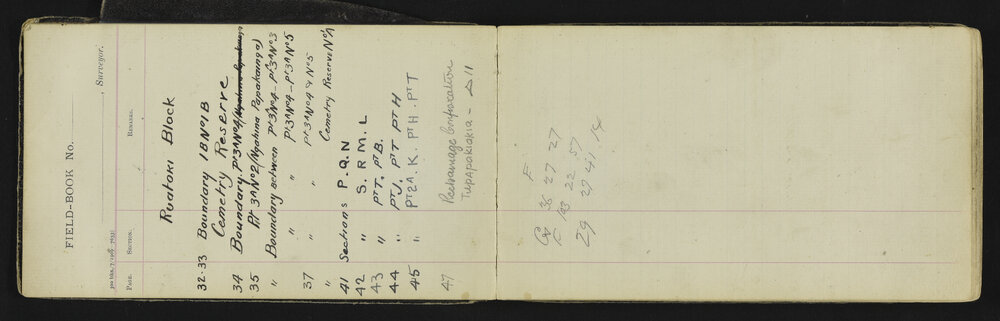 FIELD-BOOK No.
, Surveyor.
PAGE. SECTION. REMARKS.
Ruatoki Block
32-33 Boundary 1B No 1 B
Cemetry Reserve
34 Boundary. Pt 3A No 4
35 Pt 3A No 2 (Ngahina Papakainga)
" Boundary between Pt 3A No 4 - Pt 3A No 3
" Pt 3A No 4 - Pt 3A No 5
37 " Pt 3A No 4 & No 5
" " Cemetry Reserve No 1
41 Sections P. Q. N
42 " S. R. M. L
43 " PT T. PT B.
44 " PT J. PT T PT H
45 " PT 2A. K. PT H. PT T
47 Reobserved
Tupapakiakia - △ 11
F
36 27 27
193 22 57
29 29 41. 14